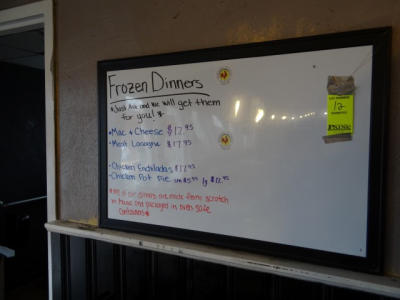 Frozen Dinners
*Just Ask and We will get them
for you! *
• Mac & Cheese $12.95
• Meat Lasagna $17.95
• Chicken Enchiladas $12.95
• Chicken Pot Pie sm $5.95 lg $12.95
of our dinners are made from scratch
in house and packaged in oven safe
containers *
12